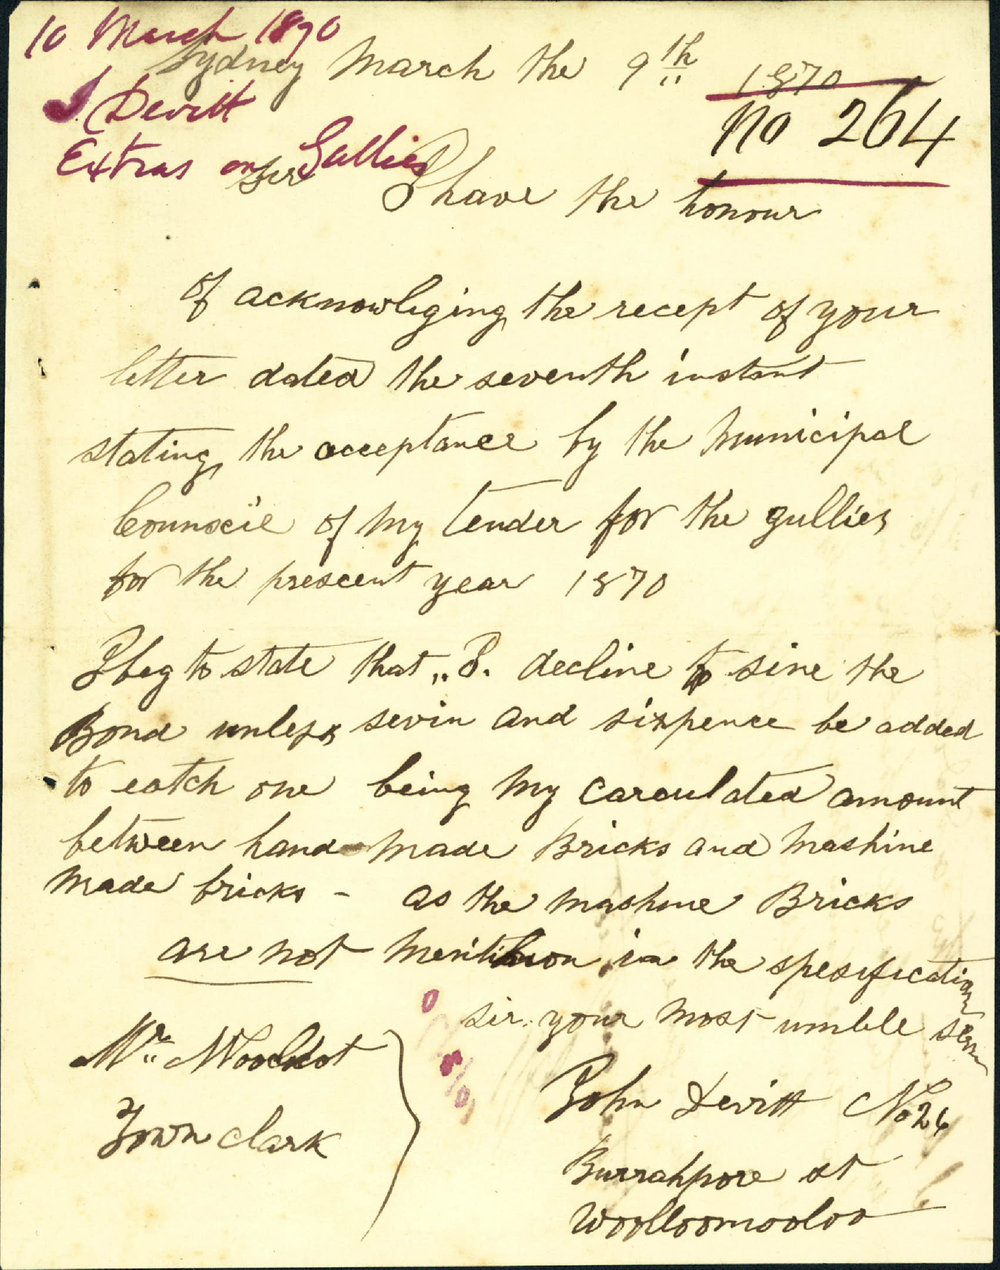 10 March 1870
Sydney March the 9th 1870
J Devitt
No 264
Extras on Gullies
Sir I have the honour
of acknowliging the recept of your
letter dated the seventh instant
stating the acceptance by the Municipal
Counscil of My tender for the gullies
for the prescent year 1870
I beg to state that „I. decline to sine the
Bond unless sevin and sixpence be added
to eatch one being My carculated amount
between hand made Bricks and Mashine
Made bricks - as the Mashine Bricks
are not Mentihon in the spesification
sir your most umble serv
Mr Woolcot
Town Clark
John Devitt No 26
Burrahpore st
Woolloomooloo